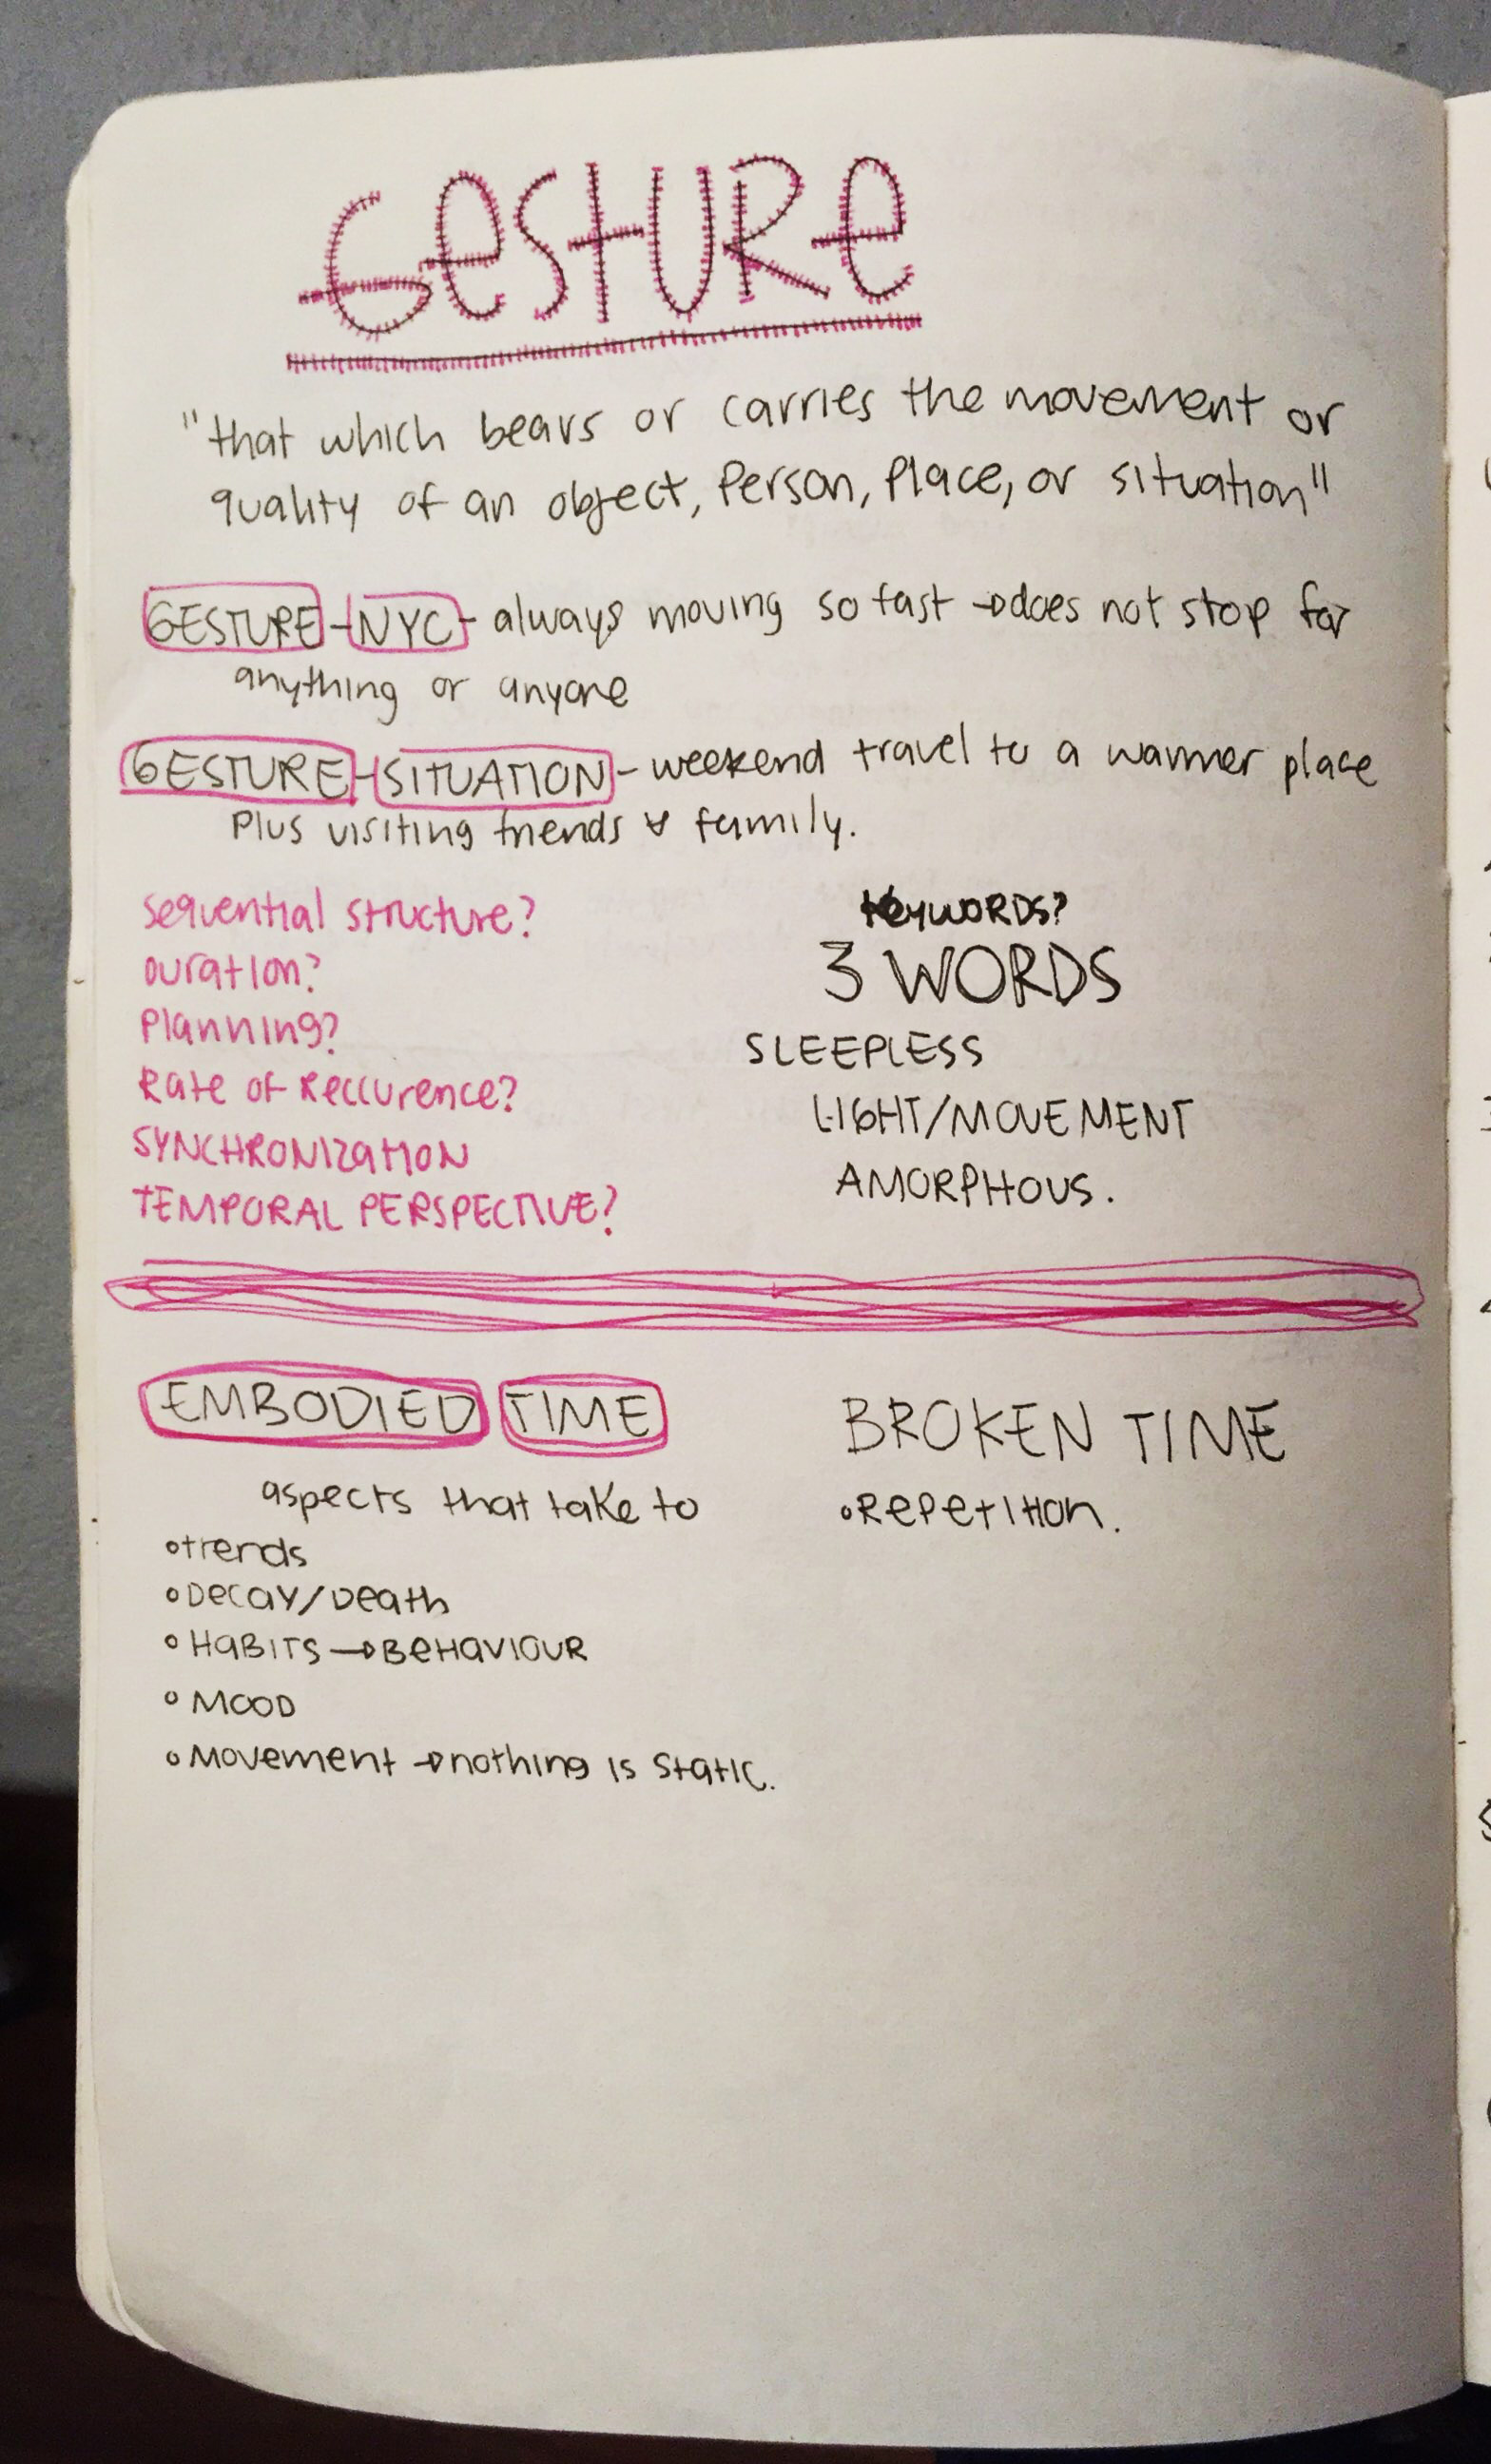 GeSTURe
"that which bears or carries the movement or
quality of an object, Person, Place, or situation"
GESTURE - NYC - always moving so fast → does not stop for
anything or anyone
GESTURE - SITUATION - weekend travel to a warmer place
Plus visiting friends & family.
sequential structure?
Duration?
Planning?
Rate of Reccurence?
SYNCHRONIZaTION
TEMPORAL PERSPECTIVE?
KeYWORDS?
3 WORDS
SLEEPLESS
LIGHT/MOVEMENT
AMORPHOUS.
EMBODIED TIME
aspects that take to
• trends
• Decay/Death
• HaBITS → BeHaVIOUR
• MOOD
• Movement → nothing is static.
BROKEN TIME
• Repetition.